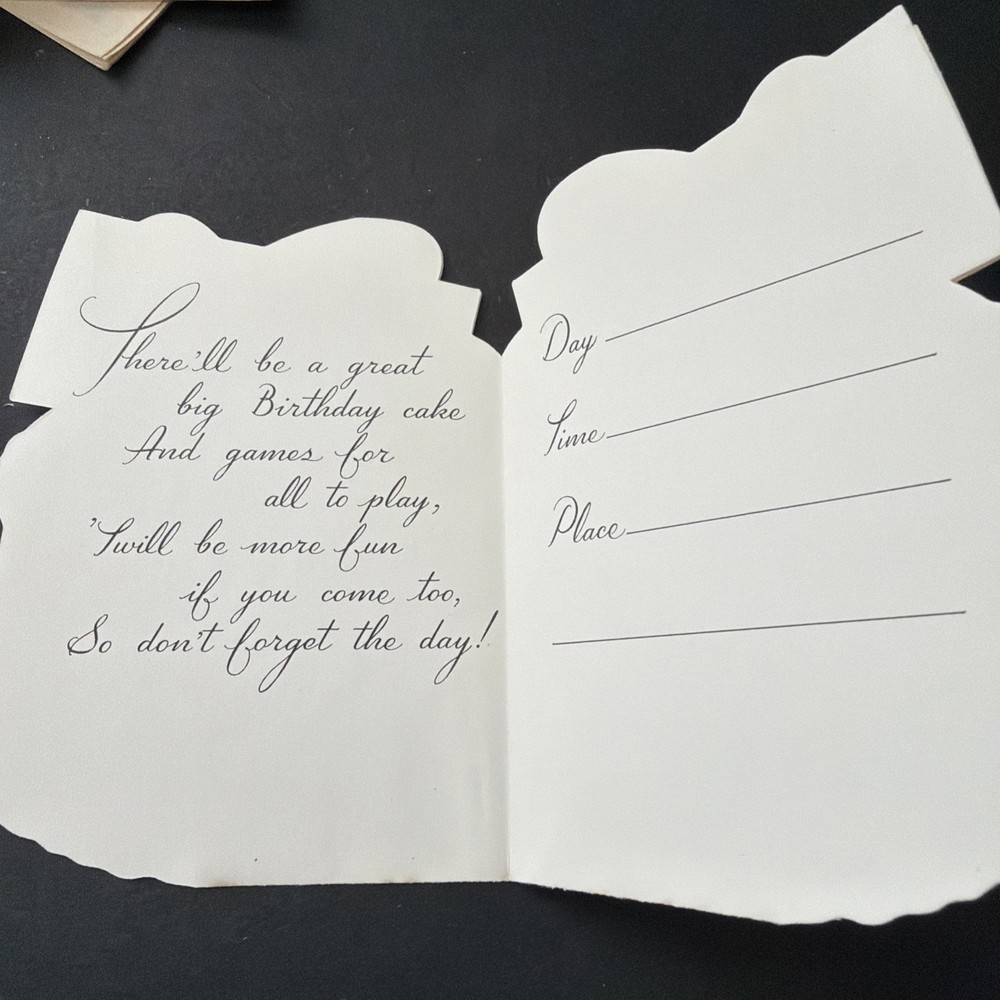 There'll be a great
big Birthday cake
And games for
all to play,
'Twill be more fun
if you come too,
So don't forget the day!
Day
Time
Place